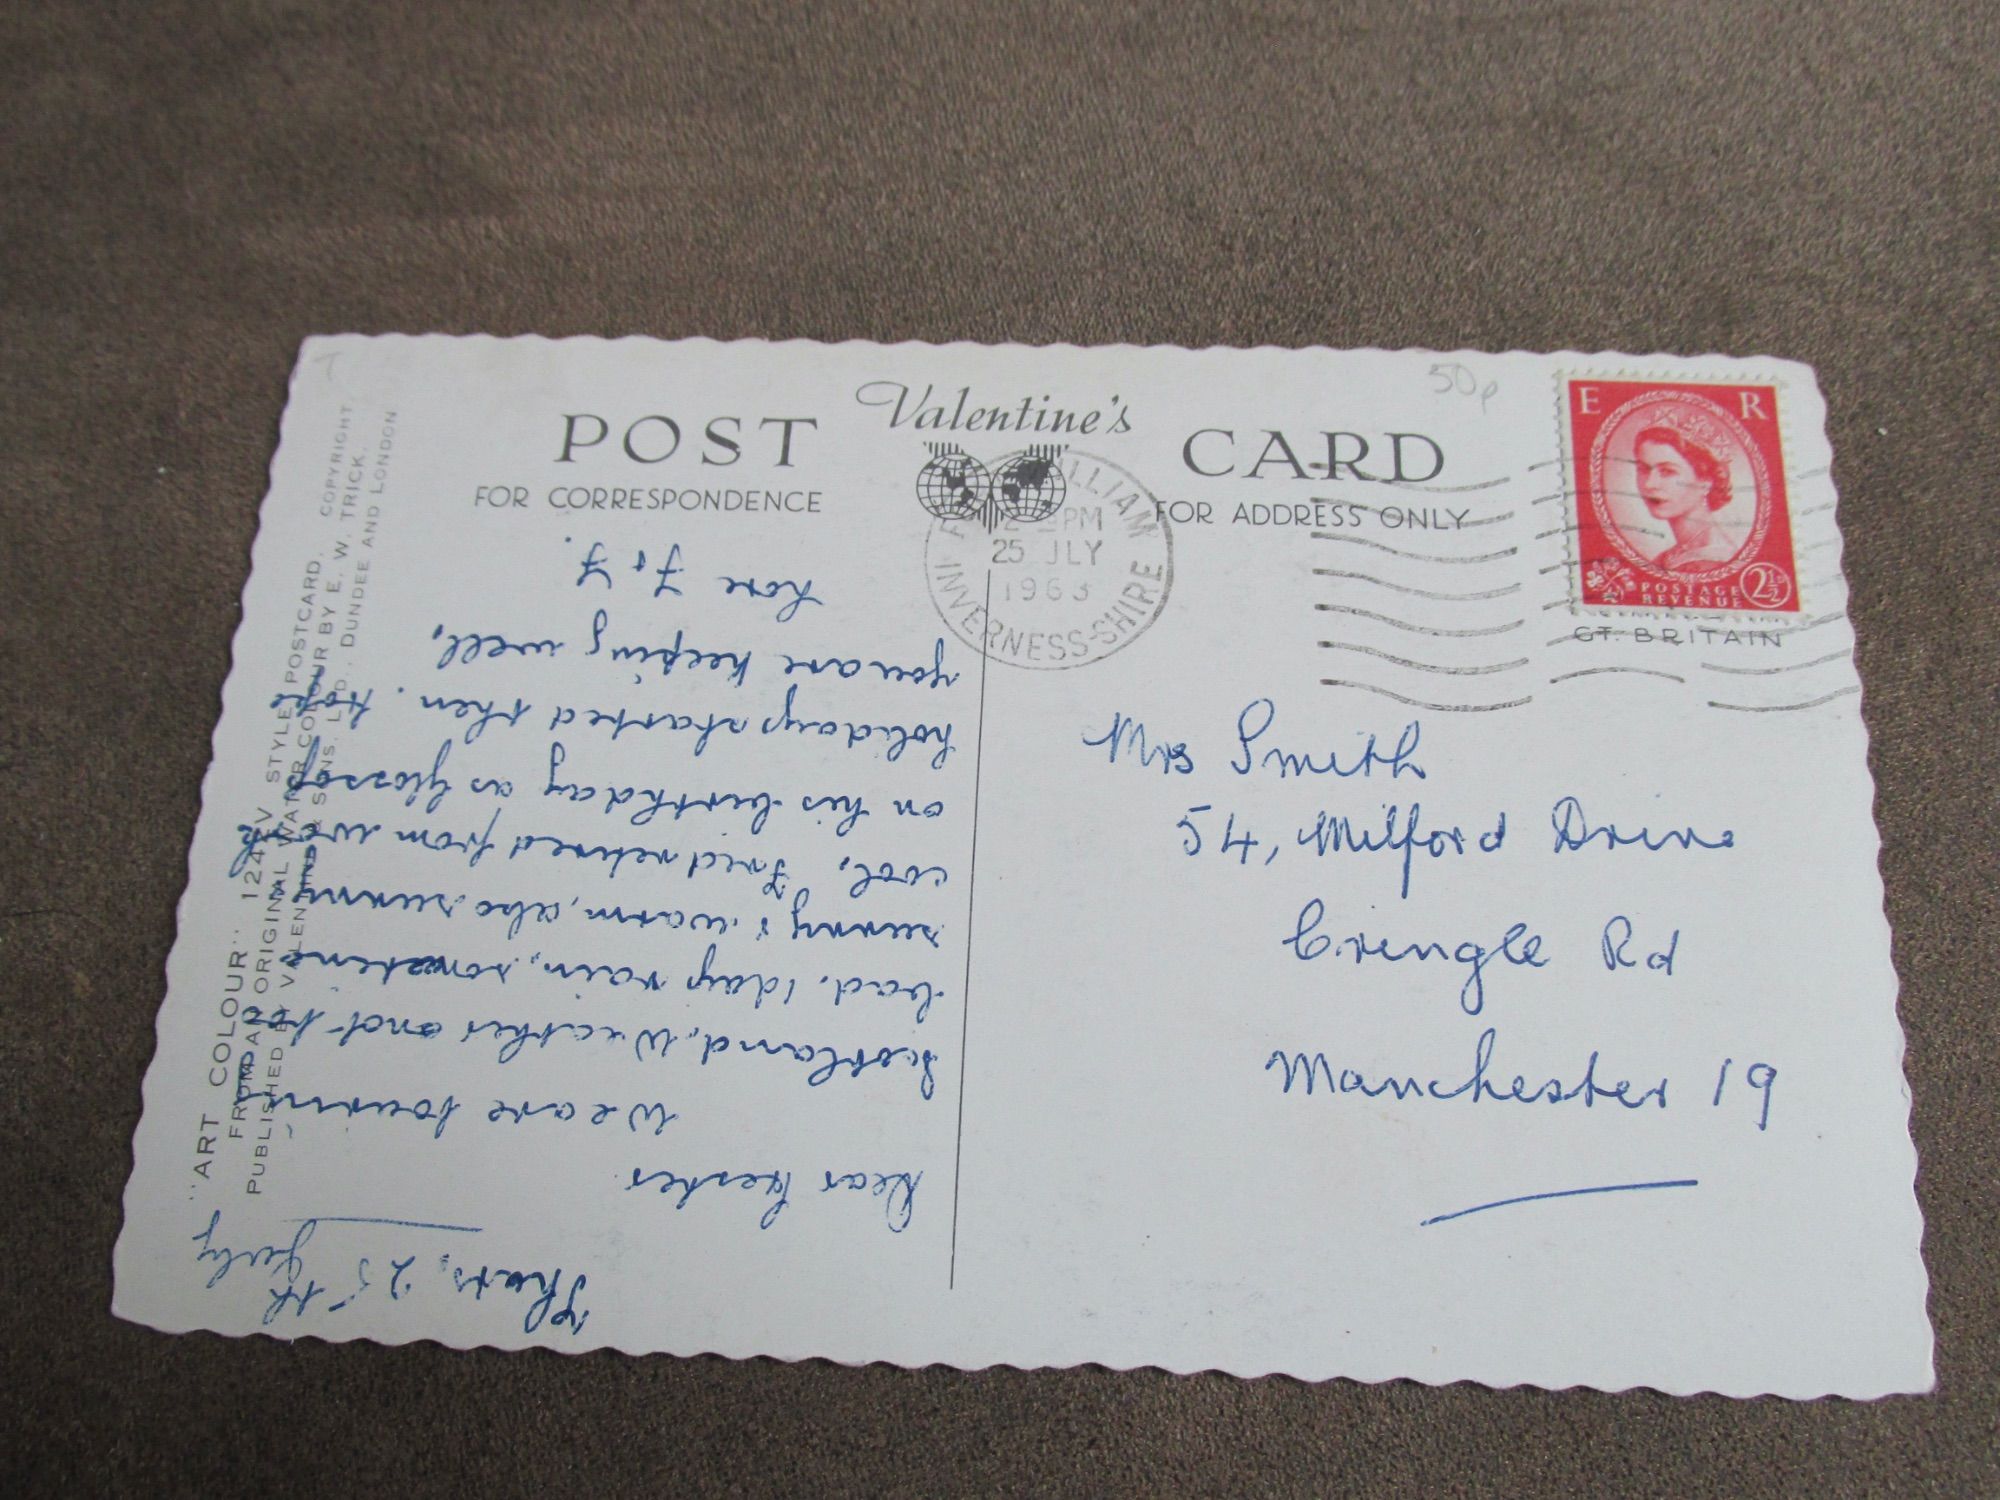 Valentine's
POST CARD
FOR CORRESPONDENCE
FOR ADDRESS ONLY
50p
E R
POSTAGE
REVENUE
2½D
GT. BRITAIN
WILLIAM
PM
25 JLY
1963
INVERNESS-SHIRE
Mrs Smith
54, Milford Drive
Cringle Rd
Manchester 19
Thurs, 25th July
Dear Hester
We are touring
Scotland. Weather not too
bad. 1 day rain, sometime
sunny & warm, also sunny &
cool. Fred retired from work
on his birthday as Glossop
holidays started then. Hope
you are keeping well.
Love F & F.
"ART COLOUR" 124 EV STYLE POSTCARD. COPYRIGHT.
FROM AN ORIGINAL WATER COLOUR BY E. W. TRICK.
PUBLISHED BY VALENTINE & SONS, LTD., DUNDEE AND LONDON